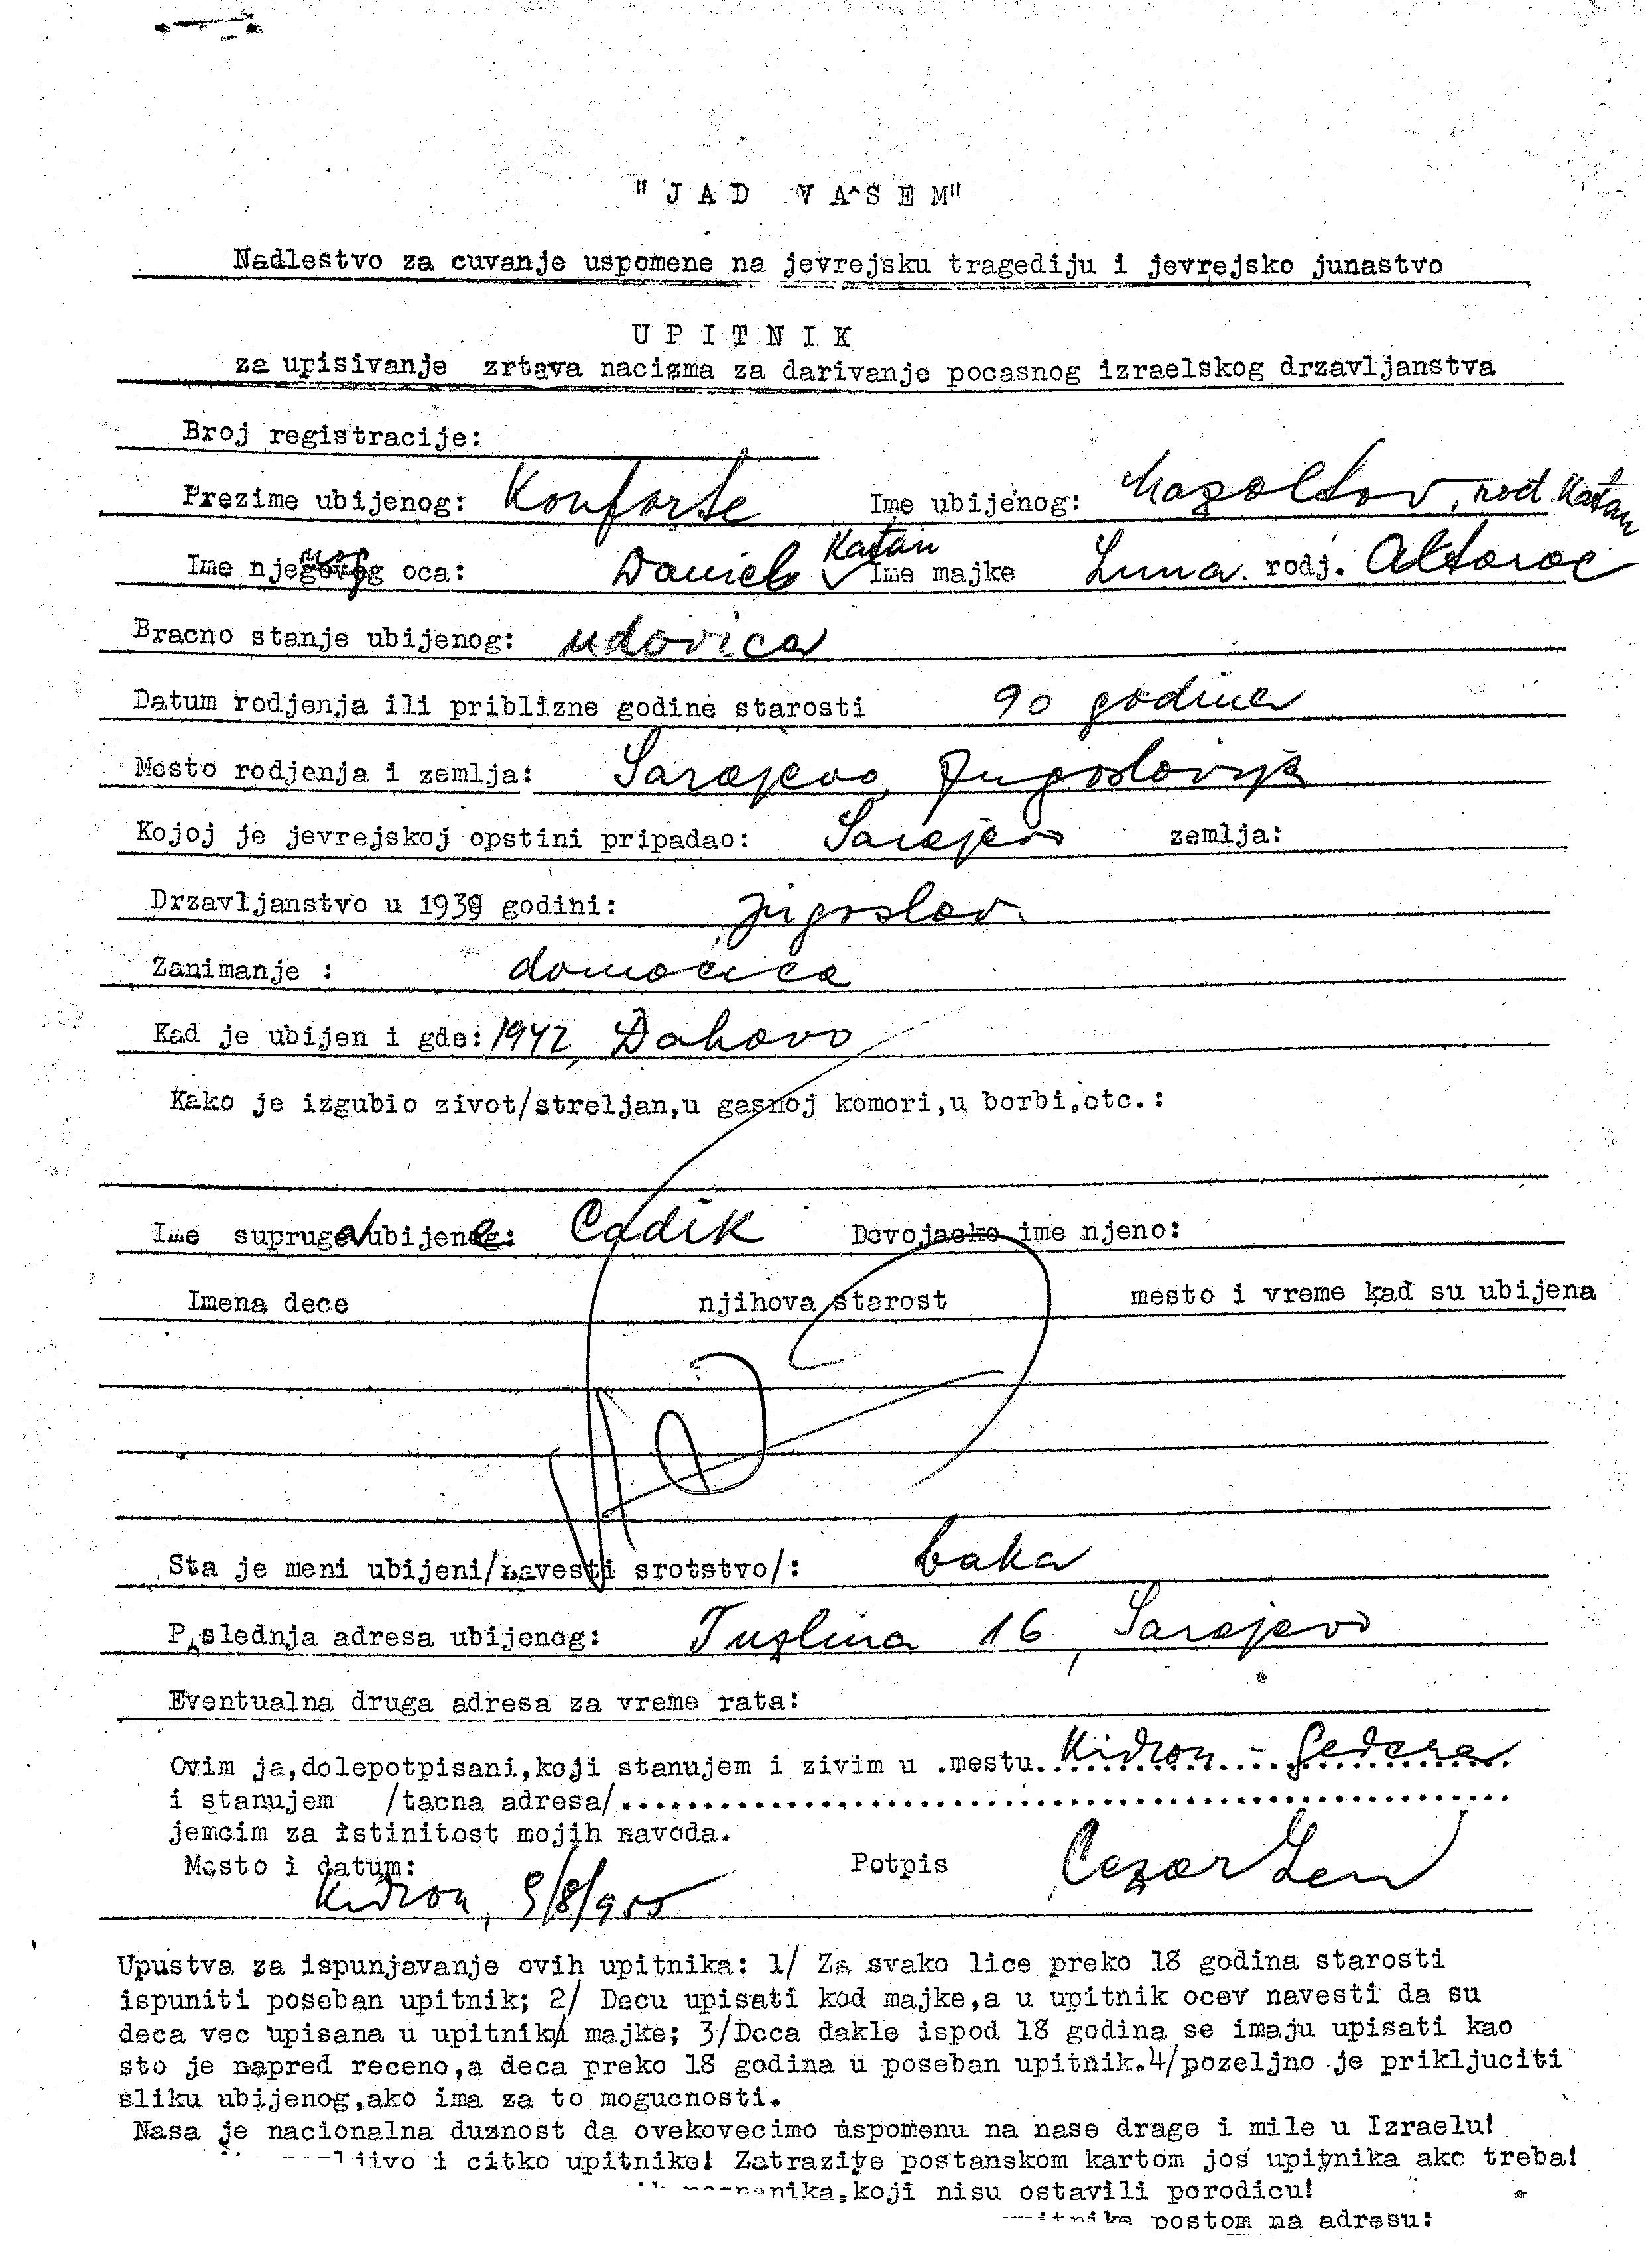 "J A D V A^S E M"
Nadlestvo za cuvanje uspomene na jevrejsku tragediju i jevrejsko junastvo
U P I T N I K
za upisivanje zrtava nacizma za darivanje pocasnog izraelskog drzavljanstva
Broj registracije:
Prezime ubijenog: Konforte Ime ubijenog: Mazoltov, rođ. Katan
Ime njegovog oca: Daniel Katan Ime majke Luna rodj. Altarac
Bracno stanje ubijenog: udovica
Datum rodjenja ili priblizne godine starosti 90 godina
Mesto rodjenja i zemlja: Sarajevo, Jugoslavija
Kojoj je jevrejskoj opstini pripadao: Sarajevo zemlja:
Drzavljanstvo u 1939 godini: jugoslav.
Zanimanje : domaćica
Kad je ubijen i gde: 1942, Đakovo
Kako je izgubio zivot/streljan,u gasnoj komori,u borbi,etc.:
Ime supruga ubijene: Cadik Devojacko ime njeno:
Imena dece njihova starost mesto i vreme kad su ubijena
Sta je meni ubijeni/navesti srotstvo/: baka
Poslednja adresa ubijenog: Tuzlina 16, Sarajevo
Eventualna druga adresa za vreme rata:
Ovim ja,dolepotpisani,koji stanujem i zivim u .mestu Kidron - Gedera
i stanujem /tacna adresa/
jemcim za istinitost mojih navoda.
Mesto i datum: Potpis Cezar Levi
Kidron, 9/8/955
Upustva za ispunjavanje ovih upitnika: 1/ Za svako lice preko 18 godina starosti
ispuniti poseban upitnik; 2/ Decu upisati kod majke,a u upitnik ocev navesti da su
deca vec upisana u upitniku majke; 3/Deca dakle ispod 18 godina se imaju upisati kao
sto je napred receno,a deca preko 18 godina u poseban upitnik.4/pozeljno je prikljuciti
sliku ubijenog,ako ima za to mogucnosti.
Nasa je nacionalna duznost da ovekovecimo uspomenu na nase drage i mile u Izraelu!
i citko upitnike! Zatrazite postanskom kartom jos upitnika ako treba!
koji nisu ostavili porodicu!
postom na adresu: